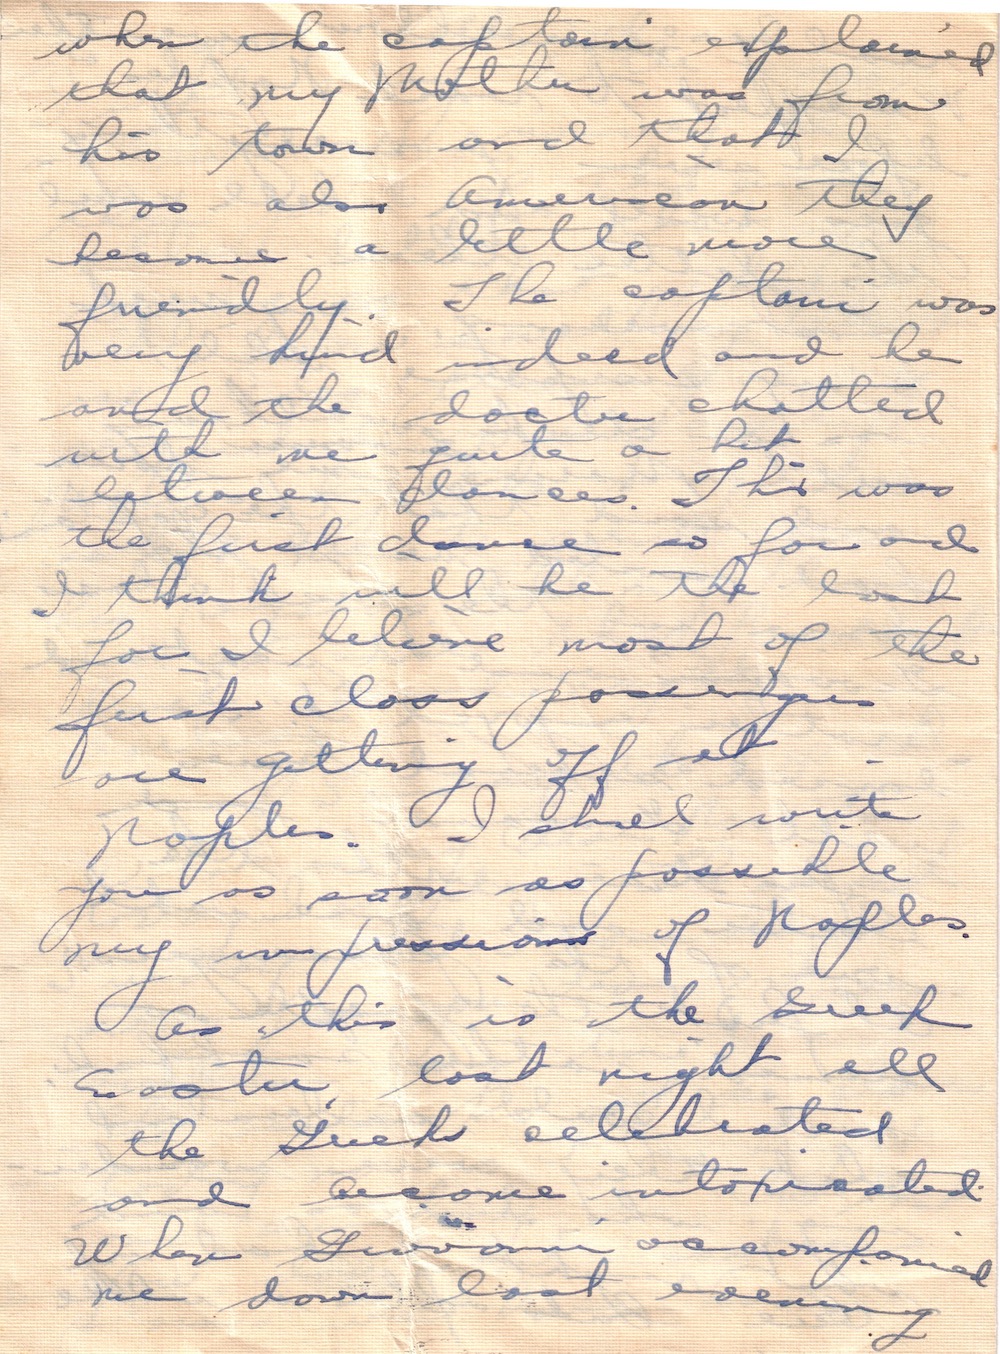 when the captain explained
that my Mother was from
his town and that I
was also American they
became a little more
friendly. The captain was
very kind indeed and he
and the doctor chatted
with me quite a bit
between dances. This was
the first dance so far and
I think will be the last
for I believe most of the
first class passengers
are getting off at
Naples. I shall write
you as soon as possible
my impressions of Naples.
As this is the Greek
Easter, last night all
the Greeks celebrated
and became intoxicated.
When Giovanni accompanied
me down last evening